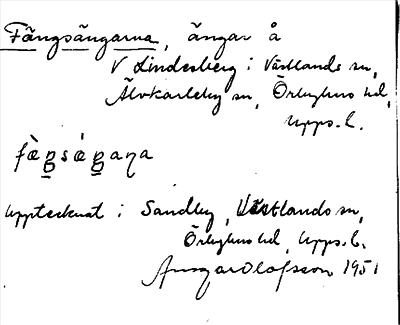 Fängsängarna, ängar å
V Lindesberg i Västlands sn,
Älvkarleby sn, Örbyhus hd,
Upps. l.
fæ̀ŋsæ̀ŋaɳa
Upptecknat i Sandby, Västlands sn,
Örbyhus hd, Upps. l.
Ansgar Olofsson 1951